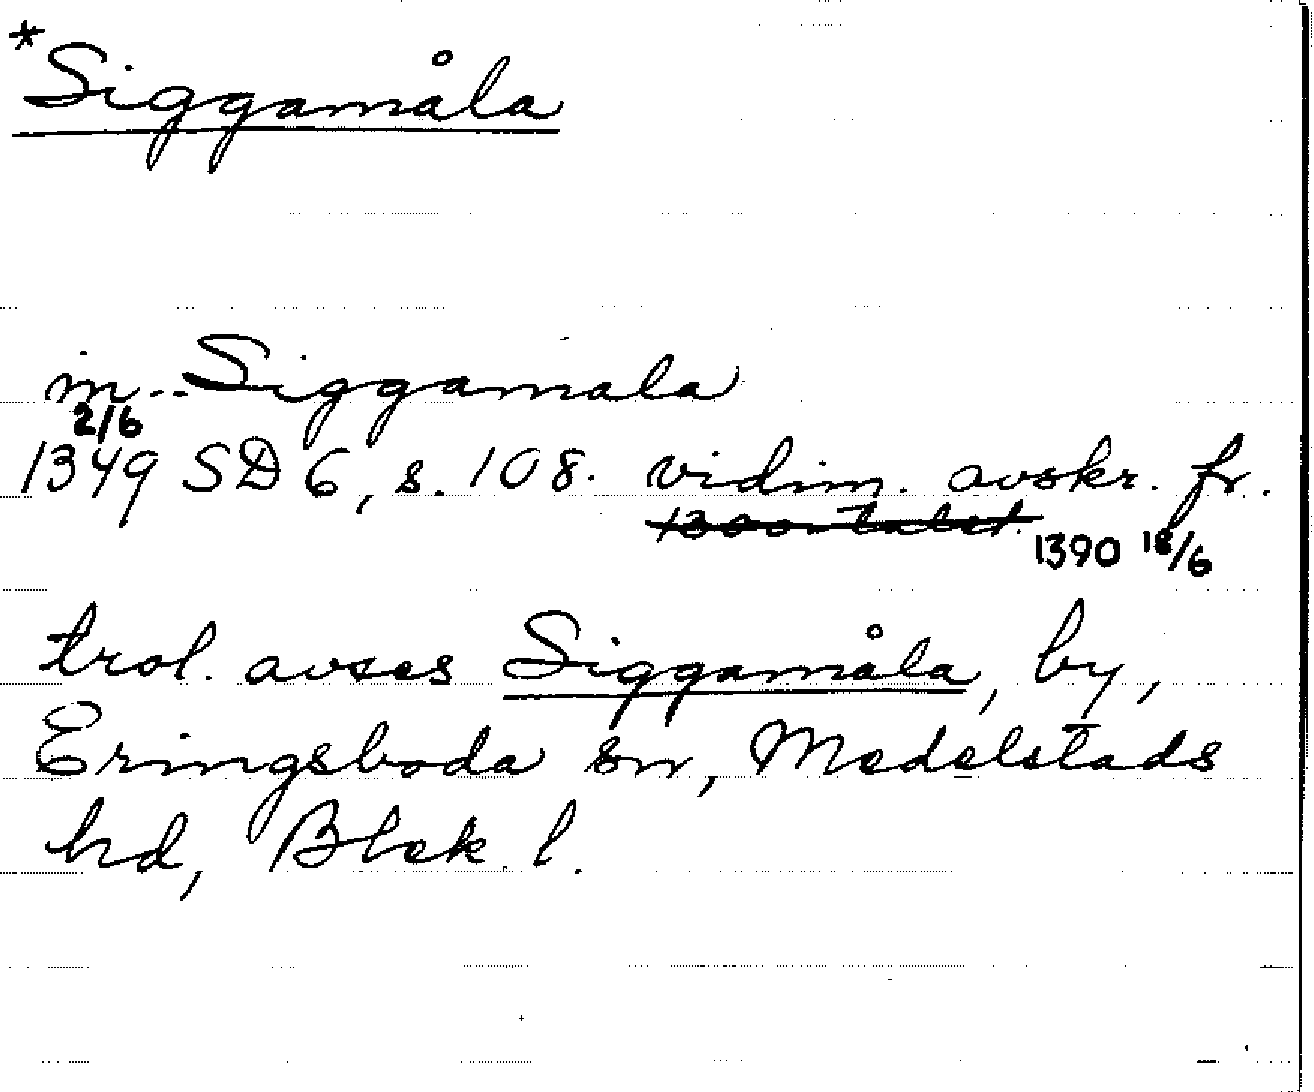 *Siggamåla
in.. Siggamala
2/6
1349 SD 6, s. 108. vidim. avskr. fr.
1300-talet. 1390 18/6
trol. avses Siggamåla, by,
Eringsboda sn, Medelstads
hd, Blek. l.